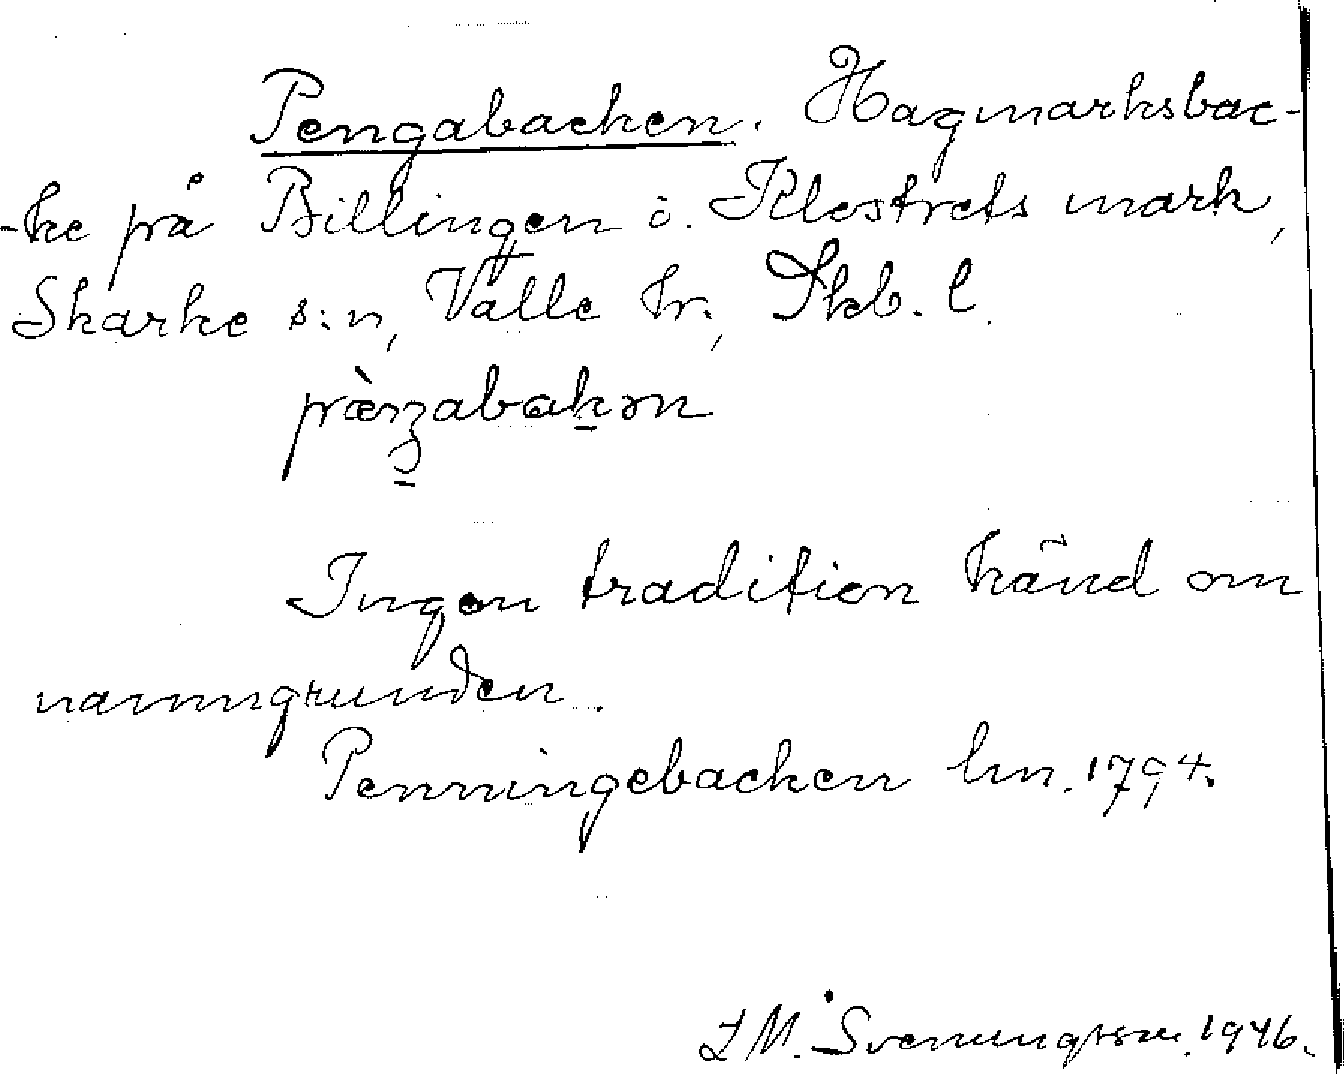 Pengabacken. Hagmarksbac-
-ke på Billingen i. Klostrets mark,
Skarke s:n, Valle hr., Skb. l.
Ingen tradition känd om
namngrunden.
Penningebacken lm. 1794.
L M. Svenungsson. 1946.